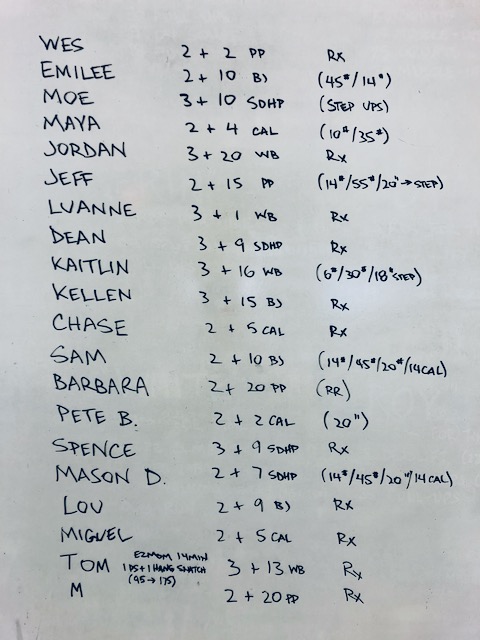 WES 2 + 2 PP Rx
EMILEE 2 + 10 BJ (45#/14#)
MOE 3 + 10 SDHP (STEP UPS)
MAYA 2 + 4 CAL (10#/35#)
JORDAN 3 + 20 WB Rx
JEFF 2 + 15 PP (14#/55#/20"→STEP)
LUANNE 3 + 1 WB Rx
DEAN 3 + 9 SDHP Rx
KAITLIN 3 + 16 WB (6#/30#/18"STEP)
KELLEN 3 + 15 BJ Rx
CHASE 2 + 5 CAL Rx
SAM 2 + 10 BJ (14#/45#/20"/14CAL)
BARBARA 2 + 20 PP (RR)
PETE B. 2 + 2 CAL (20")
SPENCE 3 + 9 SDHP Rx
MASON D. 2 + 7 SDHP (14#/45#/20"/14CAL)
LOU 2 + 9 BJ Rx
MIGUEL 2 + 5 CAL Rx
TOM E2MOM 14MIN 1 PS + 1 HANG SNATCH (95→175) 3 + 13 WB Rx
M 2 + 20 PP Rx